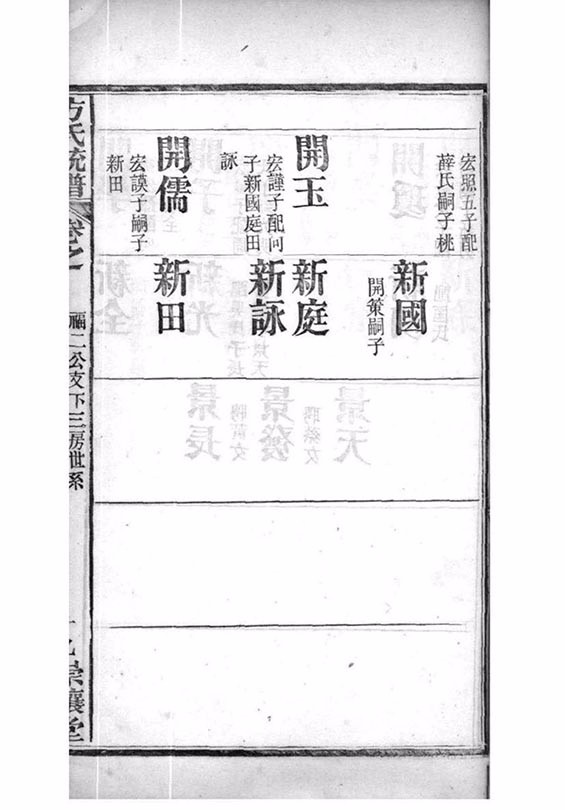 宏照五子配
薛氏嗣子桃
開玉
宏謹子配向
子新國庭田
詠
開儒
宏謨子嗣子
新田
新國
開策嗣子
新庭
新詠
新田
方氏統譜
卷之
福二公支下三房世系
崇讓堂